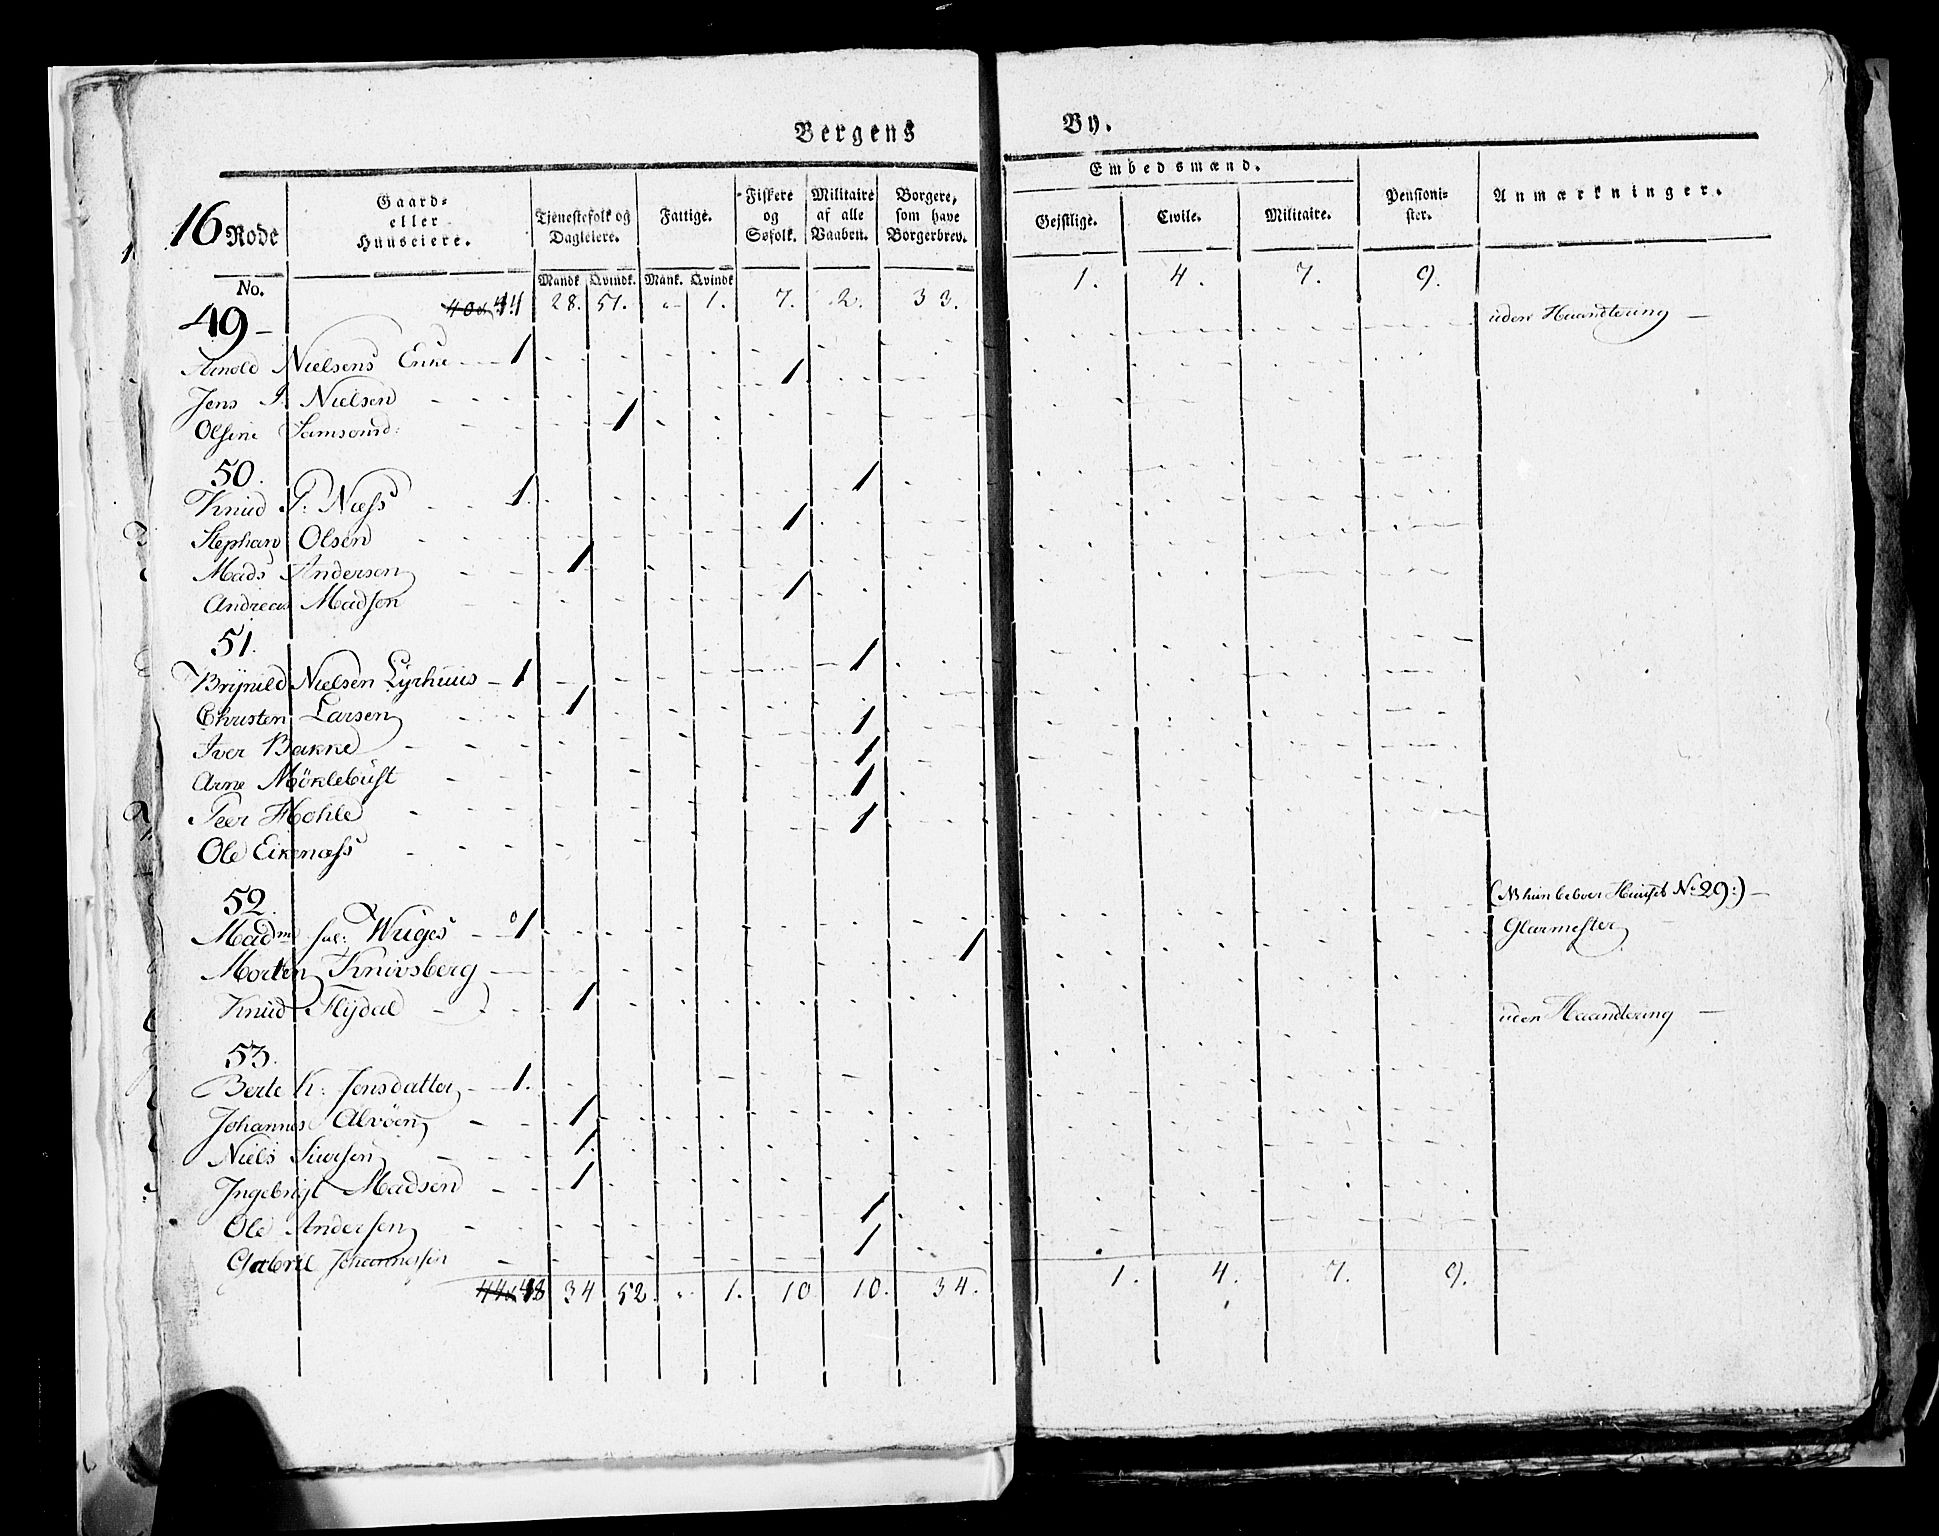 Bergens By.
16 Rode
No.
Gaard- eller Huuseiere.
Tjenestefolk og Dagleiere.
Mandk. Qvindk.
Fattige.
Mank. Qvindk
Fiskere og Søfolk.
Militaire af alle Vaaben.
Borgere, som have Borgerbrev.
Embedsmænd.
Gejstlige.
Civile.
Militaire.
Pensionister.
Anmærkninger.
44 28. 51. „ 1. 7. 2. 33. 1. 4. 7. 9.
49 –
Arnold Nielsens Enke 1 uden Haandtering
Jens P. Nielsen 1
Olsene Samsond: 1
50.
Knud P: Næss 1. 1
Stephan Olsen 1
Mads Andersen 1
Andreas Madsen 1
51.
Brynild Nielsen Lyrhuus 1 1
Christen Larsen 1
Iver Bakke 1
Arne Möklebust 1
Peer Hohle 1
Ole Eikenæss 1
52.
Madme sal: Wiiges 1 (NB hun beboer Huuset No 29:)
Morten Knivsberg 1 Glarmester
Knud Flydal 1
53.
Berte K: Jensdatter 1. uden Haandtering
Johannes Alvöen 1
Niels Siursen 1.
Ingebrigt Madsen 1
Ole Andersen 1
Gabriel Johannessen 1
48 34 52. „ 1. 10 10. 34. 1. 4. 7. 9.